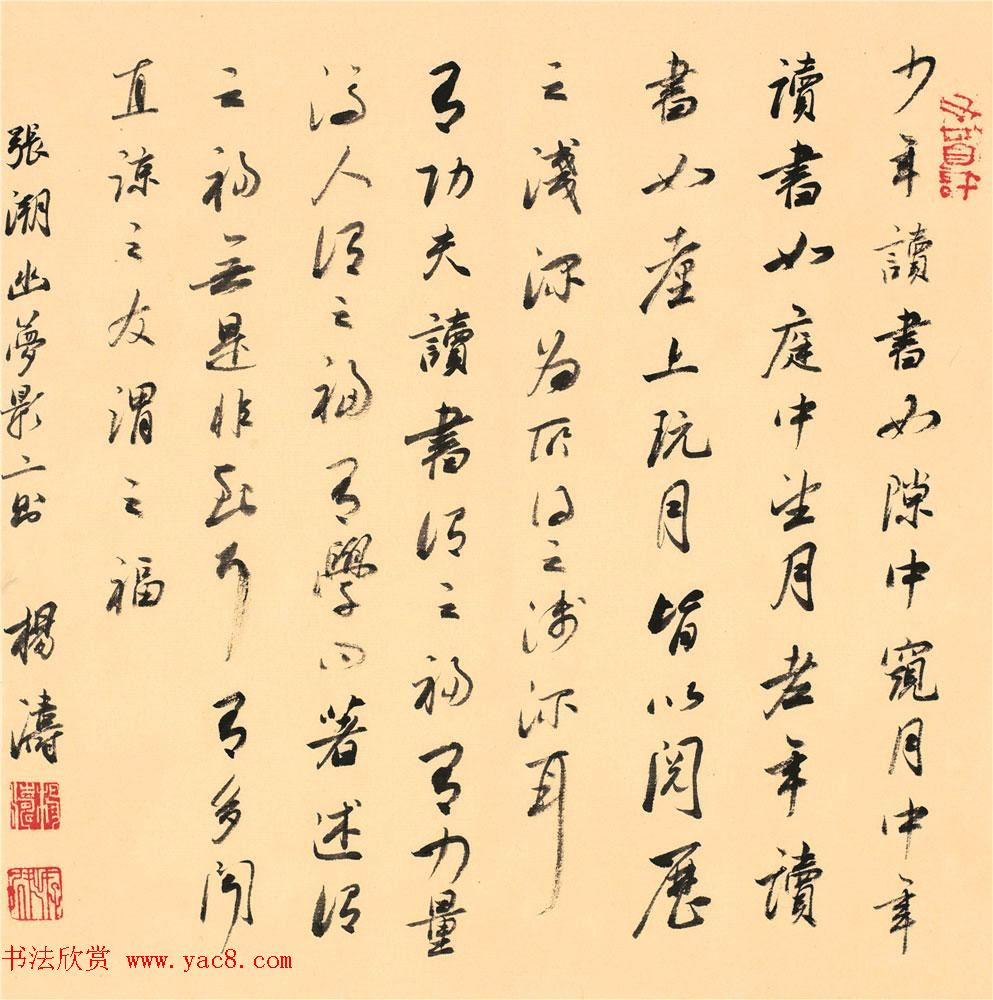 少年讀書如隙中窺月中年
讀書如庭中望月老年讀
書如臺上玩月皆以閱歷
之淺深為所得之淺深耳
有功夫讀書謂之福有力量
濟人謂之福有學問著述謂
之福無是非到耳有多聞
直諒之友謂之福
張潮幽夢影二則 楊濤
书法欣赏 www.yac8.com